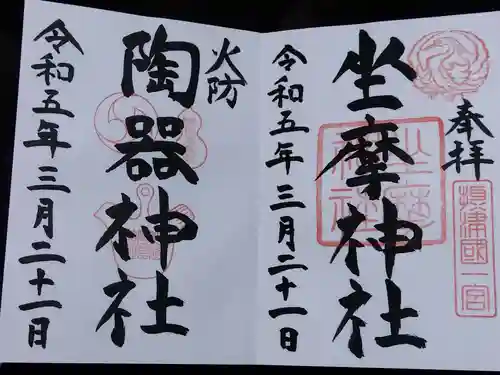 奉拝
摂津國一宮
坐摩神社
坐摩神社
令和五年三月二十一日
火防
陶器神社
令和五年三月二十一日